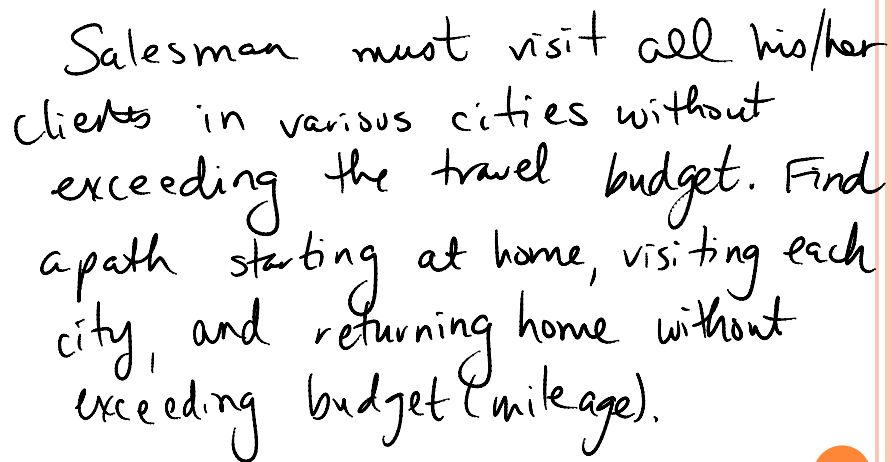 Salesman must visit all his/her
clients in various cities without
exceeding the travel budget. Find
a path starting at home, visiting each
city, and returning home without
exceeding budget (mileage).